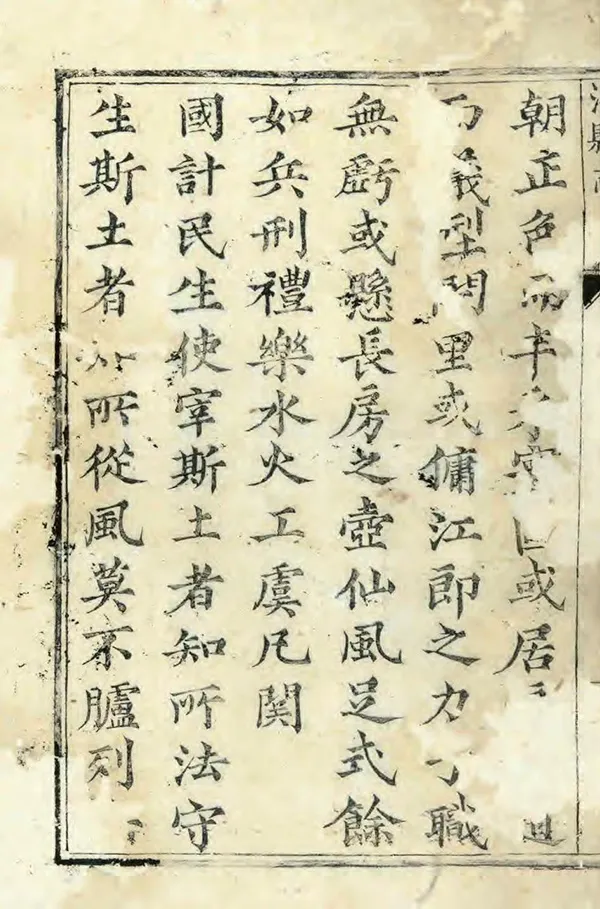 縣
朝正色而丰或居
而型閭里或傭江郎之力職
無虧或懸長房之壺仙風足式餘
如兵刑禮樂水火工虞凡関
國計民生使宰斯土者知所法守
生斯土者所從風莫不臚列